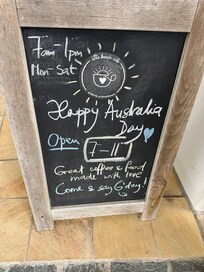 7am-1pm
Mon-Sat
Happy Australia
Day
Open
7-11
Great coffee & food
made with love
Come & say G'day!